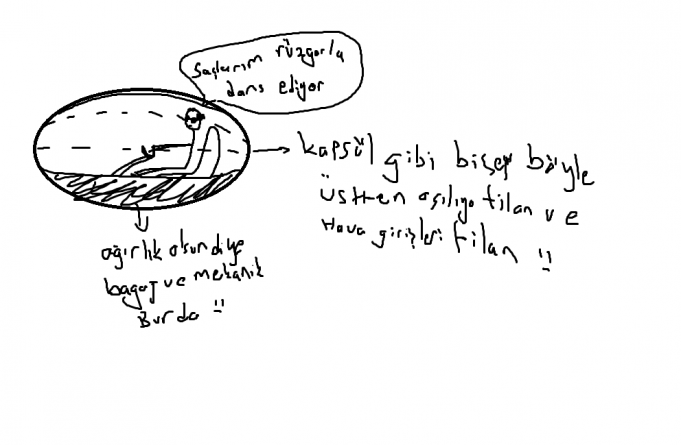 saçlarım rüzgarla
dans ediyor
kapsül gibi bişey böyle
üstten açılıyo filan ve
Hava girişleri filan !!
ağırlık olsun diye
bagaj ve mekanik
Burda !!